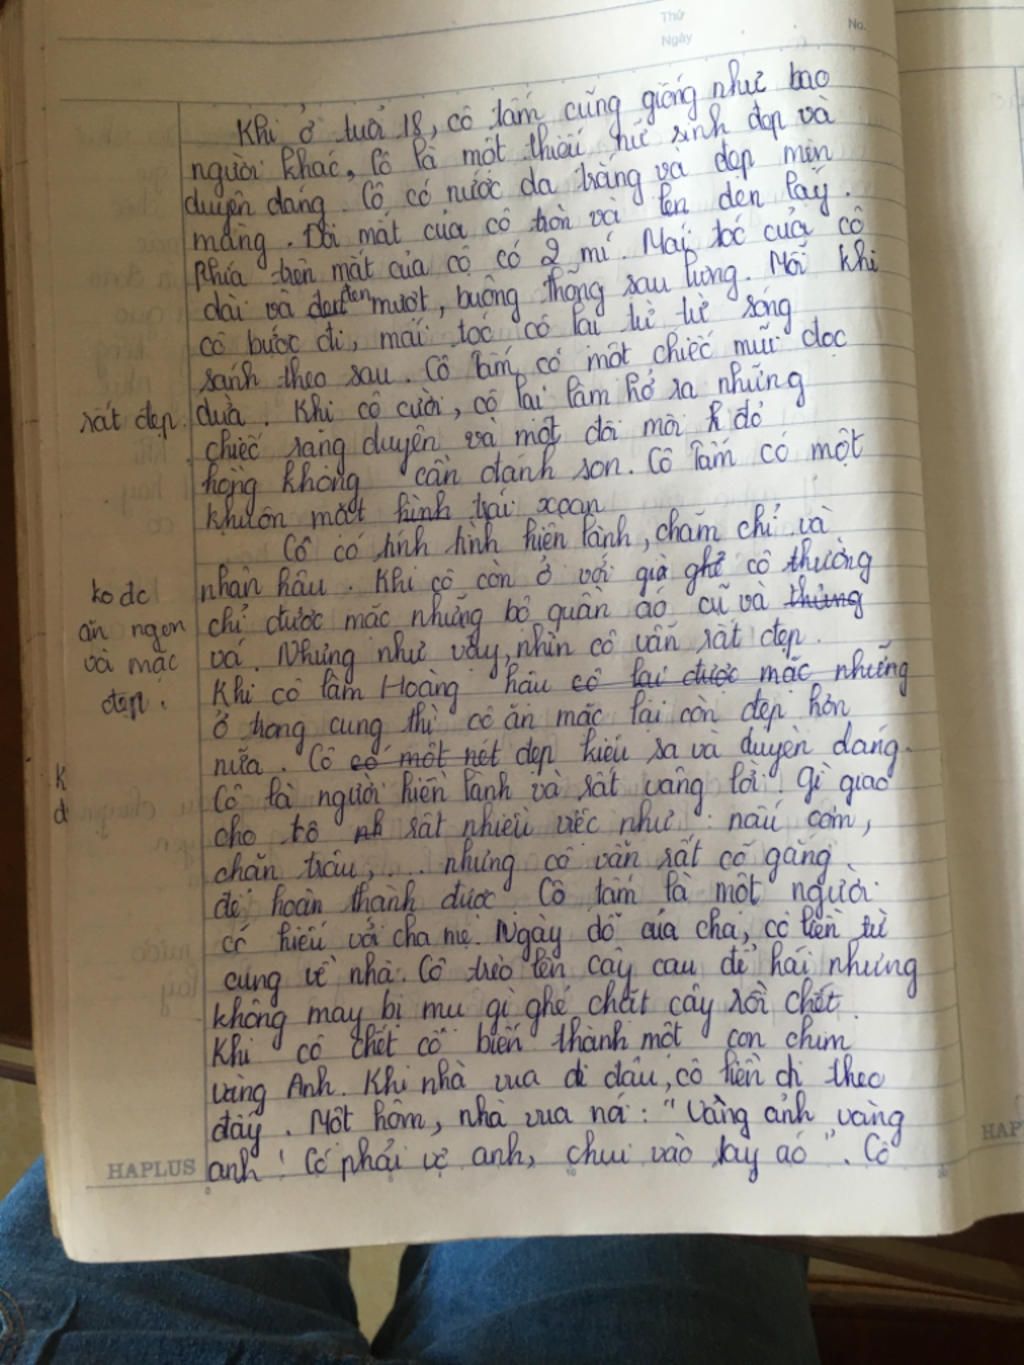 Thứ
Ngày
No.
Khi ở tuổi 18, cô tấm cũng giống như bao
người khác, cô là một thiếu nữ sinh đẹp và
duyên dáng. Cô có nước da trắng và đẹp mịn
màng. Đôi mắt của cô tròn và đen láy.
Phía trên mắt của cô có 2 mí. Mái tóc của cô
dài và đen mượt, buông thõng sau lưng. Mỗi khi
cô bước đi, mái tóc cô lại từ từ sóng
sánh theo sau. Cô Tấm có một chiếc mũi dọc
rất đẹp. dừa. Khi cô cười, cô lại làm hở ra những
chiếc răng duyên và một đôi môi đỏ
hồng không cần đánh son. Cô Tấm có một
khuôn mặt hình trái xoan
Cô có tính tình hiền lành, chăm chỉ và
nhân hậu. Khi cô còn ở với già ghẻ cô thường
ko đc
ăn ngon
và mặc
đẹp.
chỉ được mặc những bộ quần áo cũ và thủng
vá. Nhưng như vậy, nhìn cô vẫn rất đẹp.
Khi cô làm Hoàng hậu cô lại được mặc những
ở trong cung thì cô ăn mặc lại còn đẹp hơn
nữa. Cô có một nét đẹp kiêu sa và duyên dáng.
K
đ
Cô là người hiền lành và rất vâng lời. Gì giao
cho cô rất nhiều việc như: nấu cơm,
chăn trâu,... nhưng cô vẫn rất cố gắng
để hoàn thành được. Cô tấm là một người
có hiếu với cha mẹ. Ngày dỗ của cha, cô liền từ
cung về nhà. Cô trèo lên cây cau để hái nhưng
không may bị mụ gì ghẻ chặt cây rồi chết.
Khi cô chết cô biến thành một con chim
vàng Anh. Khi nhà vua đi đâu, cô liền đi theo
đấy. Một hôm, nhà vua nói: "Vàng ảnh vàng
anh! Có phải vợ anh, chui vào tay áo". Cô
HAPLUS
HAP